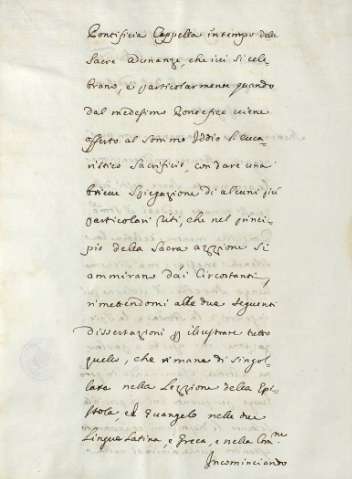 Pontificia Cappella in tempo delle
Sacre Adunanze, che ivi si cele-
brano, e particolarmente quando
dal medesimo Pontefice viene
offerto al sommo Iddio l'Euca-
ristico Sacrificio, con dare una
brieve spiegazione di alcuni più
particolari riti, che nel princi-
pio della Sacra azzione si
ammirano dai Circostanti,
rimettendomi alle due seguenti
dissertazioni p illustrare tutto
quello, che rimane di singo-
lare nella Lezzione della Epi-
stola ed Evangelo nelle due
Lingue Latina, e Greca, e nella Com.ne
Incominciando